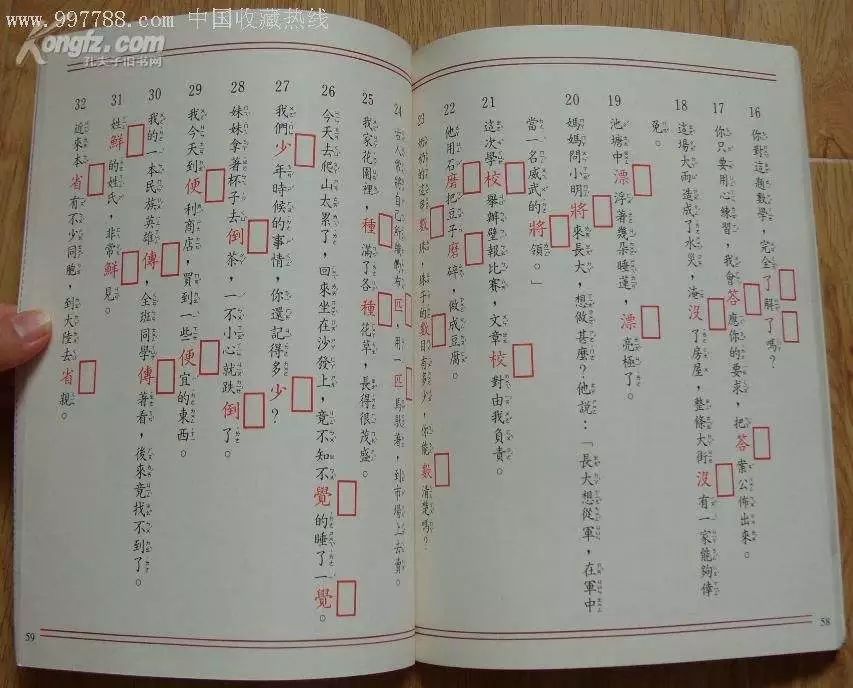 www.997788.com 中国收藏热线
Kongfz.com
孔夫子旧书网
16 你對這題數學，完全了解了嗎？
17 你只要用心練習，我會答應你的要求，把答案公佈出來。
18 這場大雨造成了水災，淹沒了房屋，整條大街沒有一家能夠倖
免。
19 池塘中漂浮著幾朵睡蓮，漂亮極了。
20 媽媽問小明將來長大，想做甚麼？他說：「長大想從軍，在軍中
當一名威武的將領。」
21 這次學校舉辦壁報比賽，文章校對由我負責。
22 他用石磨把豆子磨碎，做成豆腐。
23 數珠，珠子的數目有多少，你能數清楚嗎？
24 古人常將自己所織的布匹，用一匹馬馱著，到市場上去賣。
25 我家花園裡，種滿了各種花草，長得很茂盛。
26 今天去爬山太累了，回來坐在沙發上，竟不知不覺的睡了一覺。
27 我們少年時候的事情，你還記得多少？
28 妹妹拿著杯子去倒茶，一不小心就跌倒了。
29 我今天到便利商店，買到一些便宜的東西。
30 我的一本民族英雄傳，全班同學傳著看，後來竟找不到了。
31 姓鮮的姓氏，非常鮮見。
32 近來本省有不少同胞，到大陸去省親。
58
59